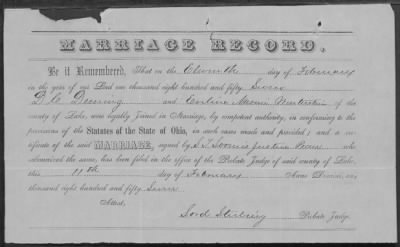 MARRIAGE RECORD.
Be it Remembered, That on the Eleventh day of February
in the year of our Lord one thousand eight hundred and fifty Seven
Deming and of the
county of Lake, were legally joined in Marriage, by competent authority, in conforming to the
provisions of the Statutes of the State of Ohio, in such cases made and provided; and a cer-
tificate of the said MARRIAGE, signed by Loomis Justice Peace who
solemnized the same, has been filed in the office of the Probate Judge of said county of Lake,
this 11th day of February Anno Domini, one
thousand eight hundred and fifty Seven
Attest,
Probate Judge.